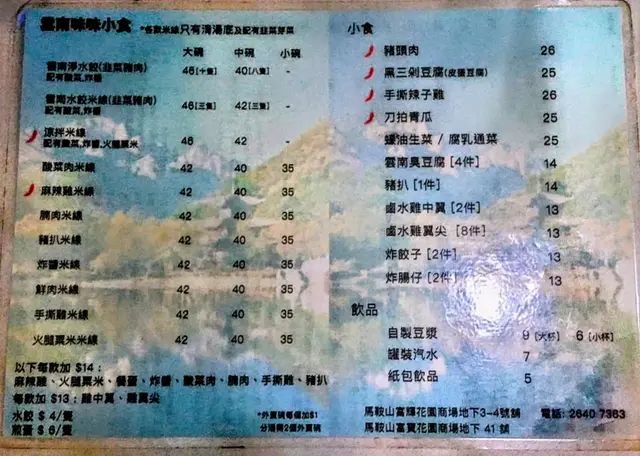 雲南味味小食 *各款米線只有清湯底及配有韮菜芽菜
大碗 中碗 小碗
雲南淨水餃(韮菜豬肉) 46[十隻] 40[八隻] -
配有酸菜,炸醬
雲南水餃米線(韮菜豬肉) 46[三隻] 42[三隻] -
配有酸菜,炸醬
涼拌米線 46 42 -
配有酸菜,炸醬,火腿粟米
酸菜肉米線 42 40 35
麻辣雞米線 42 40 35
腩肉米線 42 40 35
豬扒米線 42 40 35
炸醬米線 42 40 35
鮮肉米線 42 40 35
手撕雞米線 42 40 35
火腿粟米米線 42 40 35
以下每款加 $14:
麻辣雞、火腿粟米、餐蛋、炸醬、酸菜肉、腩肉、手撕雞、豬扒
每款加 $13:雞中翼、雞翼尖
水餃 $ 4/隻
煎蛋 $ 6/隻
*外賣碗每個加$1
分湯需2個外賣碗
小食
豬頭肉 26
黑三剁豆腐(皮蛋豆腐) 25
手撕辣子雞 26
刀拍青瓜 25
蠔油生菜 / 腐乳通菜 25
雲南臭豆腐 [4件] 14
豬扒 [1件] 14
鹵水雞中翼 [2件] 13
鹵水雞翼尖 [8件] 13
炸餃子 [2件] 13
炸腸仔 [2件] 13
飲品
自製豆漿 9 [大杯] 6 [小杯]
罐裝汽水 7
紙包飲品 5
馬鞍山富輝花園商場地下3-4號舖 電話: 2640 7363
馬鞍山富寶花園商場地下 41 舖